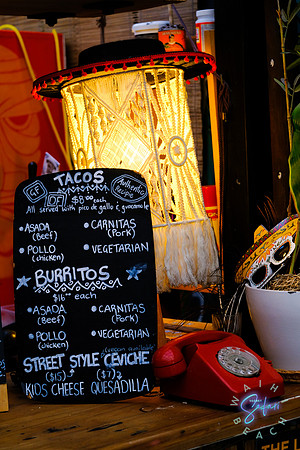 TACOS
GF
DF
$8.00 each
Authentic
Recipe
All served with pico de gallo & guacamole
• ASADA
(Beef)
• CARNITAS
(Pork)
• POLLO
(chicken)
• VEGETARIAN
BURRITOS
$16 each
• ASADA
(Beef)
• CARNITAS
(Pork)
• POLLO
(chicken)
• VEGETARIAN
(vegan available)
STREET STYLE CEVICHE
($15) ($7)
KIDS CHEESE QUESADILLA
WAIHI
BEACH